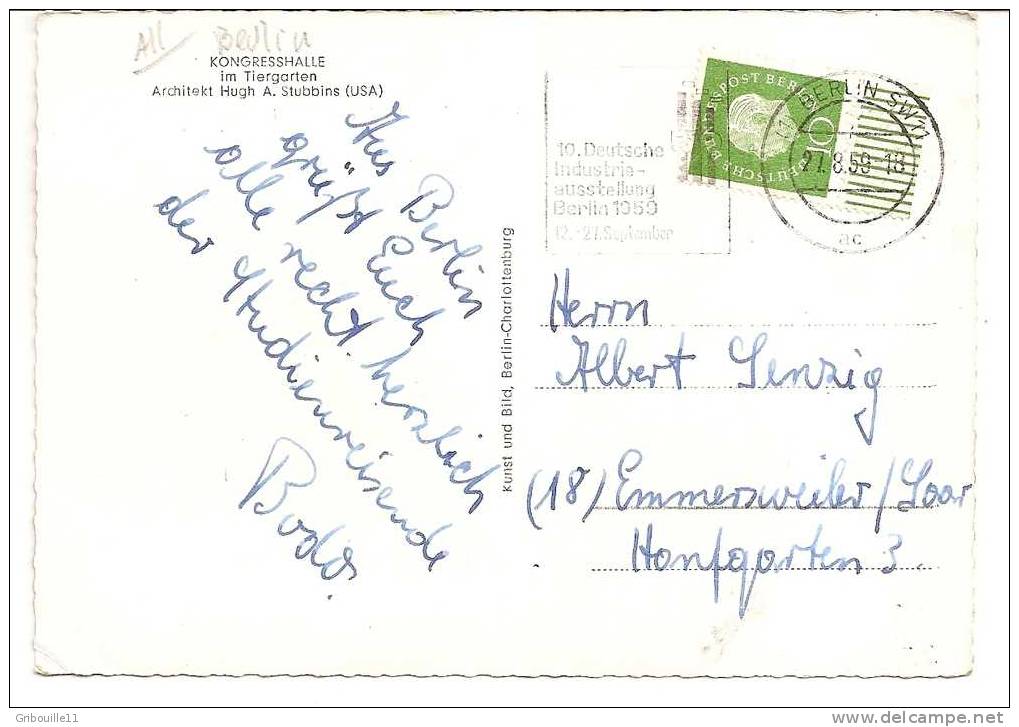 All Berlin
KONGRESSHALLE
im Tiergarten
Architekt Hugh A. Stubbins (USA)
Aus Berlin
grüßt Euch
alle recht herzlich
der Studienreisende
Bodo.
Kunst und Bild, Berlin-Charlottenburg
10. Deutsche
Industrie-
ausstellung
Berlin 1959
12.-27. September
DEUTSCHE BUNDESPOST BERLIN
10
BERLIN SW11
27.8.59-18
ac
Herrn
Albert Senzig
(18) Emmersweiler/Saar
Hanfgarten 3.
Gribouille11
www.delcampe.net